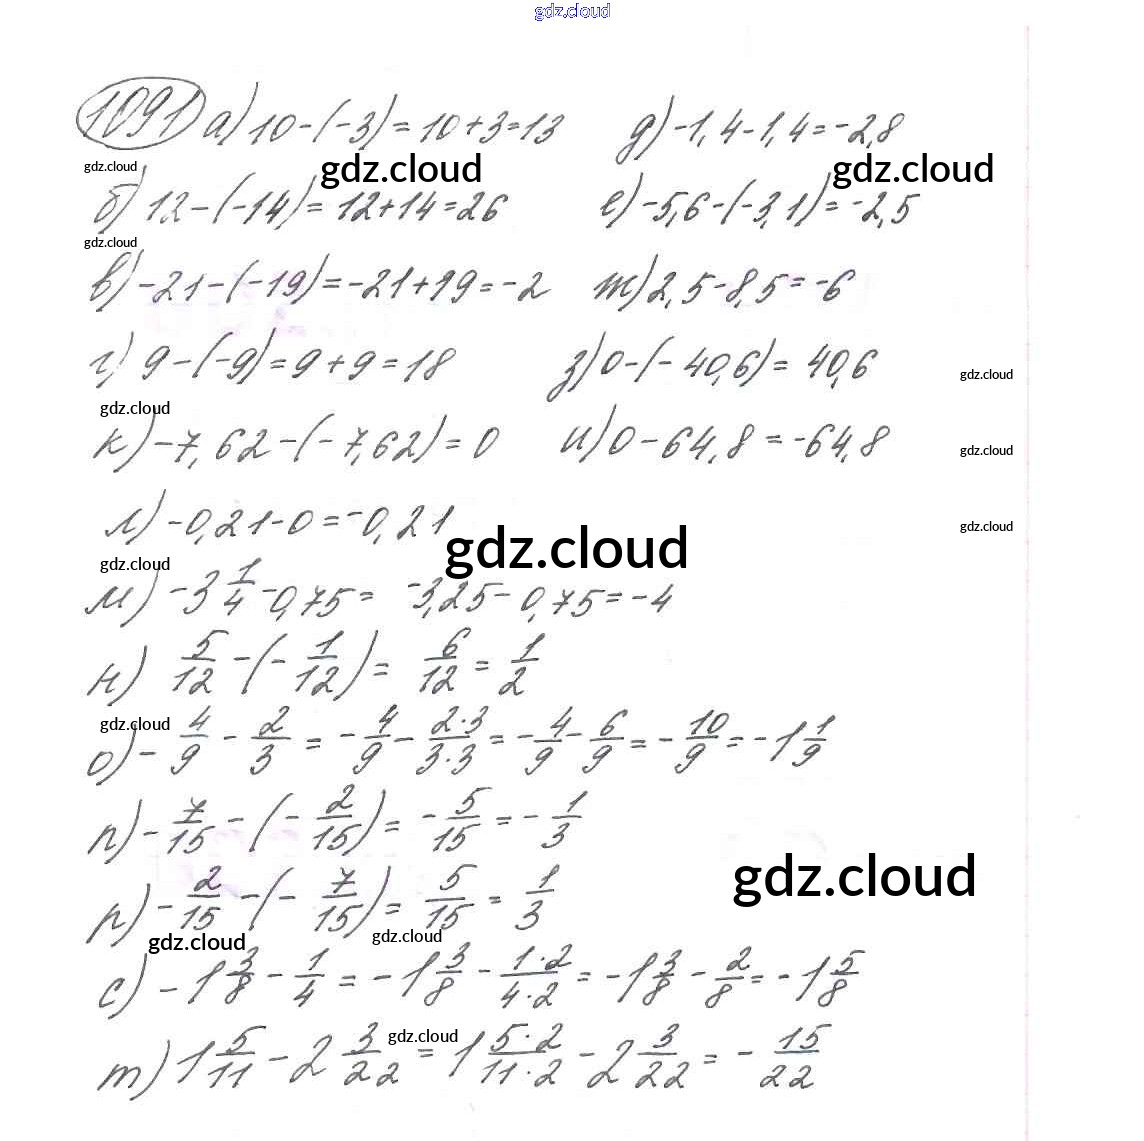 gdz.cloud
1091 а) 10-(-3)=10+3=13 д) -1,4-1,4=-2,8
gdz.cloud gdz.cloud gdz.cloud
б) 12-(-14)=12+14=26 е) -5,6-(-3,1)=-2,5
gdz.cloud
в) -21-(-19)=-21+19=-2 ж) 2,5-8,5=-6
г) 9-(-9)=9+9=18 з) 0-(-40,6)=40,6
gdz.cloud
gdz.cloud
к) -7,62-(-7,62)=0 и) 0-64,8=-64,8
gdz.cloud
л) -0,21-0=-0,21
gdz.cloud
gdz.cloud
gdz.cloud
м) -3 1/4-0,75= -3,25-0,75=-4
н) 5/12-(-1/12)= 6/12=1/2
gdz.cloud
о) -4/9-2/3=-4/9-2·3/3·3=-4/9-6/9=-10/9=-1 1/9
п) -7/15-(-2/15)=-5/15=-1/3
gdz.cloud
р) -2/15-(-7/15)=5/15=1/3
gdz.cloud gdz.cloud
с) -1 3/8-1/4=-1 3/8-1·2/4·2=-1 3/8-2/8=-1 5/8
gdz.cloud
т) 1 5/11-2 3/22=1 5·2/11·2-2 3/22=-15/22